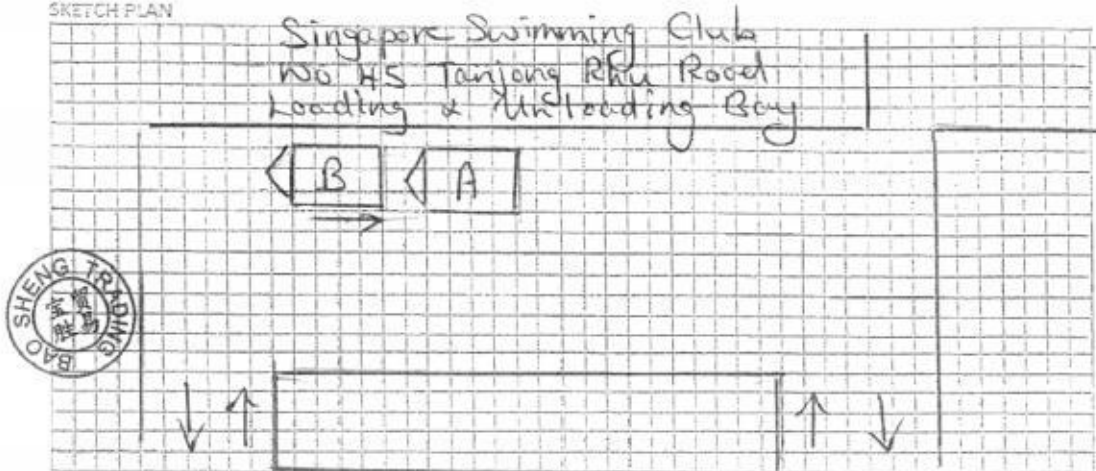 SKETCH PLAN
Singapore Swimming Club
No 45 Tanjong Rhu Road
Loading & Unloading Bay
B
A
BAO SHENG TRADING